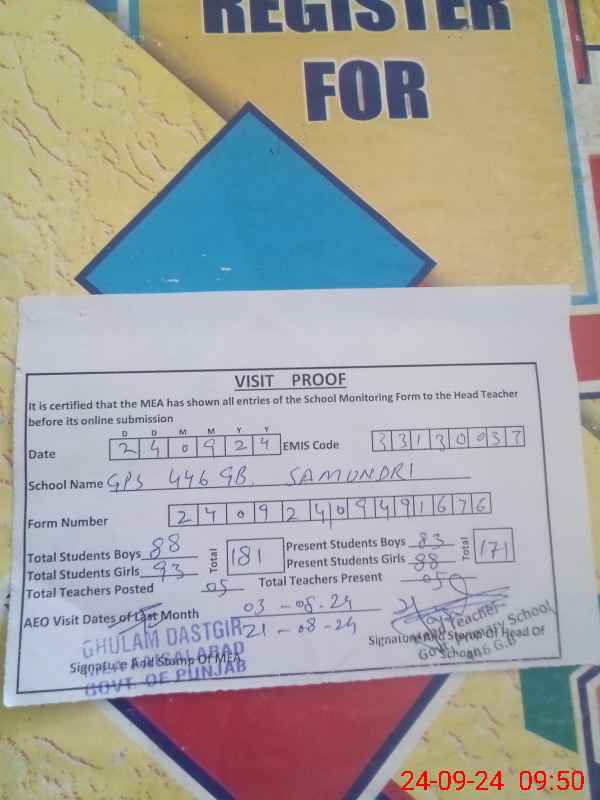 REGISTER
FOR
VISIT PROOF
It is certified that the MEA has shown all entries of the School Monitoring Form to the Head Teacher
before its online submission
D D M M Y Y
Date 2 4 0 9 2 4 EMIS Code 3 3 1 3 0 0 3 7
School Name GPS 446 GB, SAMUNDRI
Form Number 2 4 0 9 2 4 0 9 4 9 1 6 7 6
Total Students Boys 88 Total 181 Present Students Boys 83 Total 171
Total Students Girls 93 Present Students Girls 88
Total Teachers Posted 05 Total Teachers Present 05
AEO Visit Dates of Last Month 03-08-24
21-08-24
GHULAM DASTGIR
FAISALABAD
GOVT. OF PUNJAB
Signature And Stamp Of MEA
Teacher
Govt. Primary School
G.B
Signature And Stamp Of Head Of
School
24-09-24 09:50